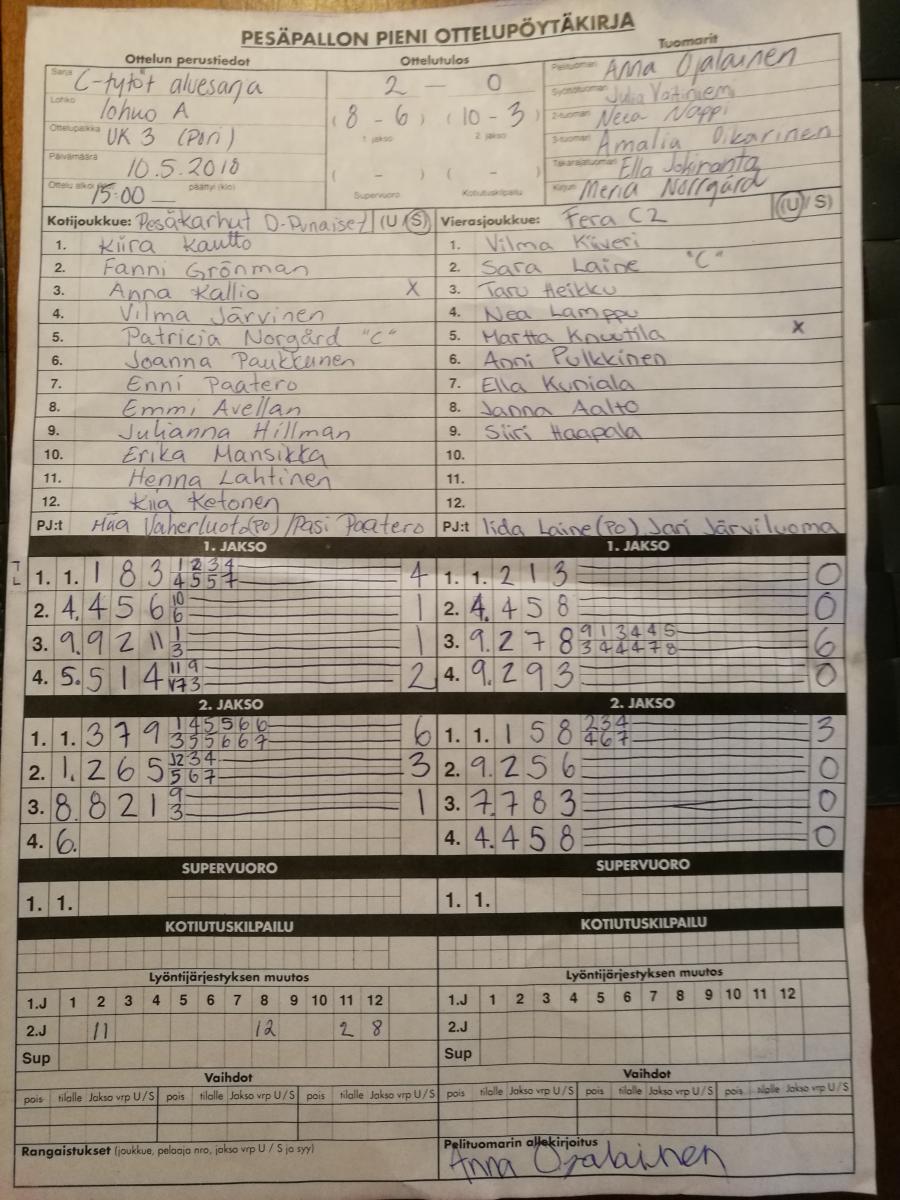 PESÄPALLON PIENI OTTELUPÖYTÄKIRJA
Ottelun perustiedot Ottelutulos Tuomarit
Sarja C-tytöt aluesarja 2 – 0 Pelituomari Anna Ojalainen
Lohko lohko A (8 - 6) (10 - 3) Syöttötuomari Julia Vatiniemi
Ottelupaikka UK 3 (Pori) 1 jakso 2 jakso 2-tuomari Neea Nappi
3-tuomari Amalia Oikarinen
Päivämäärä 10.5.2018 ( - ) ( - ) Takarajatuomari Ella Jokiranta
Ottelu alkoi (klo) 15:00 päättyi (klo) Supervuoro Kotiutuskilpailu Kirjuri Meria Norrgård
Kotijoukkue: Pesäkarhut D-Punaiset (U/S) Vierasjoukkue: Fera C2 (U/S)
1. Kiira Kautto 1. Vilma Kiveri
2. Fanni Grönman 2. Sara Laine "C"
3. Anna Kallio X 3. Taru Heikku
4. Vilma Järvinen 4. Nea Lamppu
5. Patricia Norgård "C" 5. Martta Knuutila X
6. Joanna Paukkunen 6. Anni Pulkkinen
7. Enni Paatero 7. Ella Kuniala
8. Emmi Avellan 8. Janna Aalto
9. Julianna Hillman 9. Siiri Haapala
10. Erika Mansikka 10.
11. Henna Lahtinen 11.
12. Kiia Ketonen 12.
PJ:t Vaherluoto(PO) / Pasi Paatero PJ:t Iida Laine(PO) Jari Järviluoma
1. JAKSO 1. JAKSO
1. 1. 1 8 3 1 2 3 4 4 1. 1. 2 1 3 0
4 5 5 7
2. 4. 4 5 6 10 1 2. 4. 4 5 8 0
6
3. 9. 9 2 11 1 1 3. 9. 2 7 8 9 1 3 4 4 5 6
3 3 4 4 4 7 8
4. 5. 5 1 4 11 9 2 4. 9. 2 9 3 0
V7 3
2. JAKSO 2. JAKSO
1. 1. 3 7 9 1 4 5 5 6 6 6 1. 1. 1 5 8 2 3 4 3
3 5 5 6 6 7 4 6 7
2. 1. 2 6 5 12 3 4 3 2. 9. 2 5 6 0
5 6 7
3. 8. 8 2 1 9 1 3. 7. 7 8 3 0
3
4. 6. 4. 4. 4 5 8 0
SUPERVUORO SUPERVUORO
1. 1. 1. 1.
KOTIUTUSKILPAILU KOTIUTUSKILPAILU
Lyöntijärjestyksen muutos Lyöntijärjestyksen muutos
1.J 1 2 3 4 5 6 7 8 9 10 11 12 1.J 1 2 3 4 5 6 7 8 9 10 11 12
2.J 11 12 2 8 2.J
Sup Sup
Vaihdot Vaihdot
pois tilalle Jakso vrp U / S pois tilalle Jakso vrp U / S pois tilalle Jakso vrp U / S pois tilalle Jakso vrp U / S pois tilalle Jakso vrp U / S pois tilalle Jakso vrp U / S
Rangaistukset (joukkue, pelaaja nro, jakso vrp U / S ja syy) Pelituomarin allekirjoitus
Anna Ojalainen